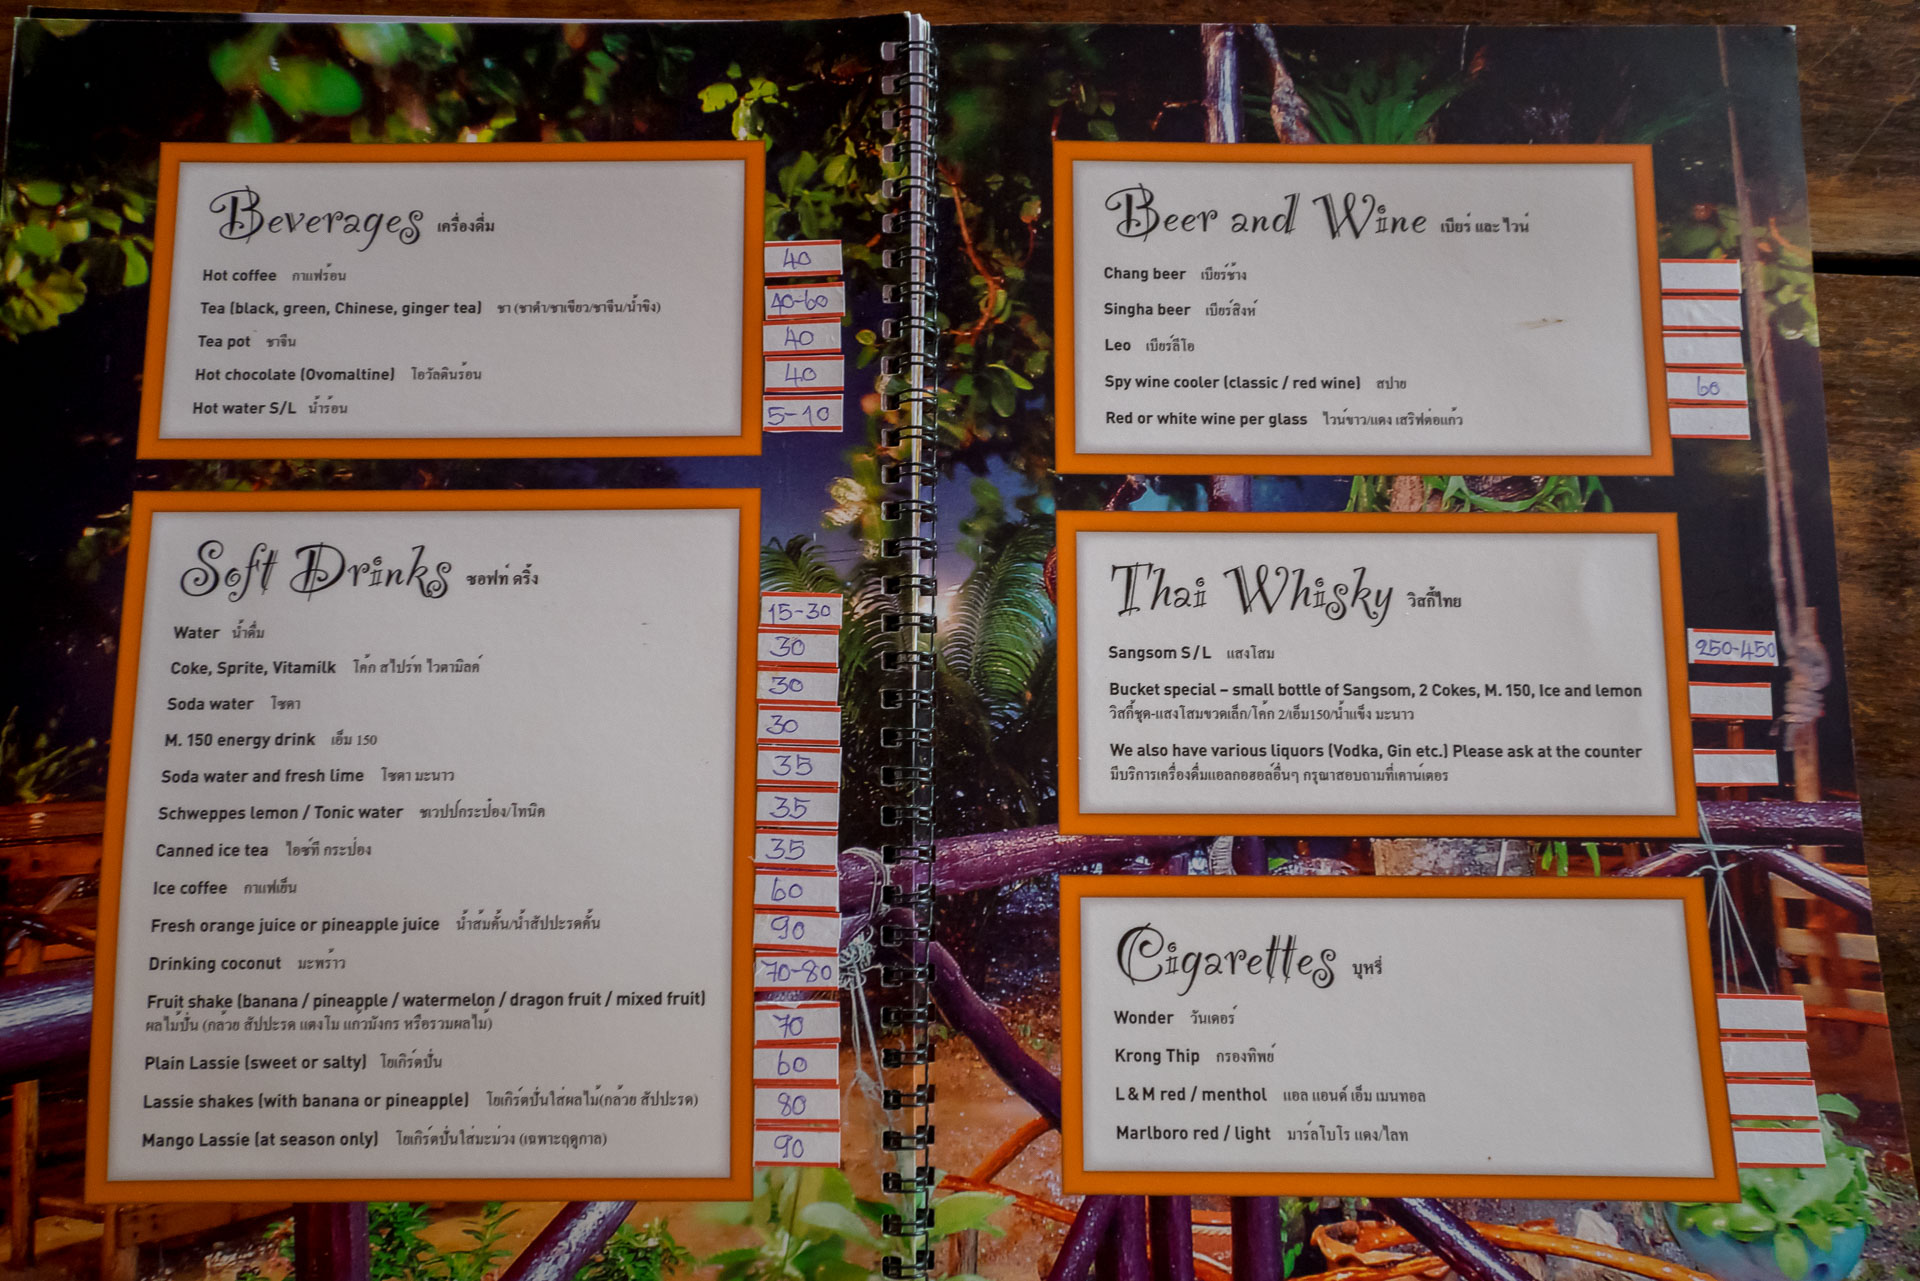 Beverages เครื่องดื่ม
Hot coffee กาแฟร้อน 40
Tea (black, green, Chinese, ginger tea) ชา (ชาดำ/ชาเขียว/ชาจีน/น้ำขิง) 40-60
Tea pot ชาจีน 40
Hot chocolate (Ovomaltine) โอวัลตินร้อน 40
Hot water S/L น้ำร้อน 5-10
Soft Drinks ซอฟท์ ดริ้ง
Water น้ำดื่ม 15-30
Coke, Sprite, Vitamilk โค้ก สไปร์ท ไวตามิลค์ 30
Soda water โซดา 30
M. 150 energy drink เอ็ม 150 30
Soda water and fresh lime โซดา มะนาว 35
Schweppes lemon / Tonic water ชเวปป์กระป๋อง/โทนิค 35
Canned ice tea ไอซ์ที กระป๋อง 35
Ice coffee กาแฟเย็น 60
Fresh orange juice or pineapple juice น้ำส้มคั้น/น้ำสัปปะรดคั้น 90
Drinking coconut มะพร้าว 70-80
Fruit shake (banana / pineapple / watermelon / dragon fruit / mixed fruit)
ผลไม้ปั่น (กล้วย สัปปะรด แตงโม แก้วมังกร หรือรวมผลไม้) 70
Plain Lassie (sweet or salty) โยเกิร์ตปั่น 60
Lassie shakes (with banana or pineapple) โยเกิร์ตปั่นใส่ผลไม้(กล้วย สัปปะรด) 80
Mango Lassie (at season only) โยเกิร์ตปั่นใส่มะม่วง (เฉพาะฤดูกาล) 90
Beer and Wine เบียร์ และ ไวน์
Chang beer เบียร์ช้าง
Singha beer เบียร์สิงห์
Leo เบียร์ลีโอ
Spy wine cooler (classic / red wine) สปาย 60
Red or white wine per glass ไวน์ขาว/แดง เสริฟต่อแก้ว
Thai Whisky วิสกี้ไทย
Sangsom S/L แสงโสม 250-450
Bucket special – small bottle of Sangsom, 2 Cokes, M. 150, Ice and lemon
วิสกี้ชุด-แสงโสมขวดเล็ก/โค้ก 2/เอ็ม150/น้ำแข็ง มะนาว
We also have various liquors (Vodka, Gin etc.) Please ask at the counter
มีบริการเครื่องดื่มแอลกอฮอล์อื่นๆ กรุณาสอบถามที่เคาน์เตอร์
Cigarettes บุหรี่
Wonder วันเดอร์
Krong Thip กรองทิพย์
L & M red / menthol แอล แอนด์ เอ็ม เมนทอล
Marlboro red / light มาร์ลโบโร แดง/ไลท